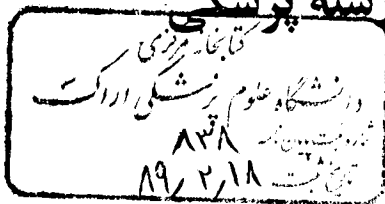 پزشکی
کتابخانه مرکزی
دانشگاه علوم پزشکی اراک
شماره ثبت پایان نامه ۸۳۸
تاریخ ثبت ۸۹/۲/۱۸